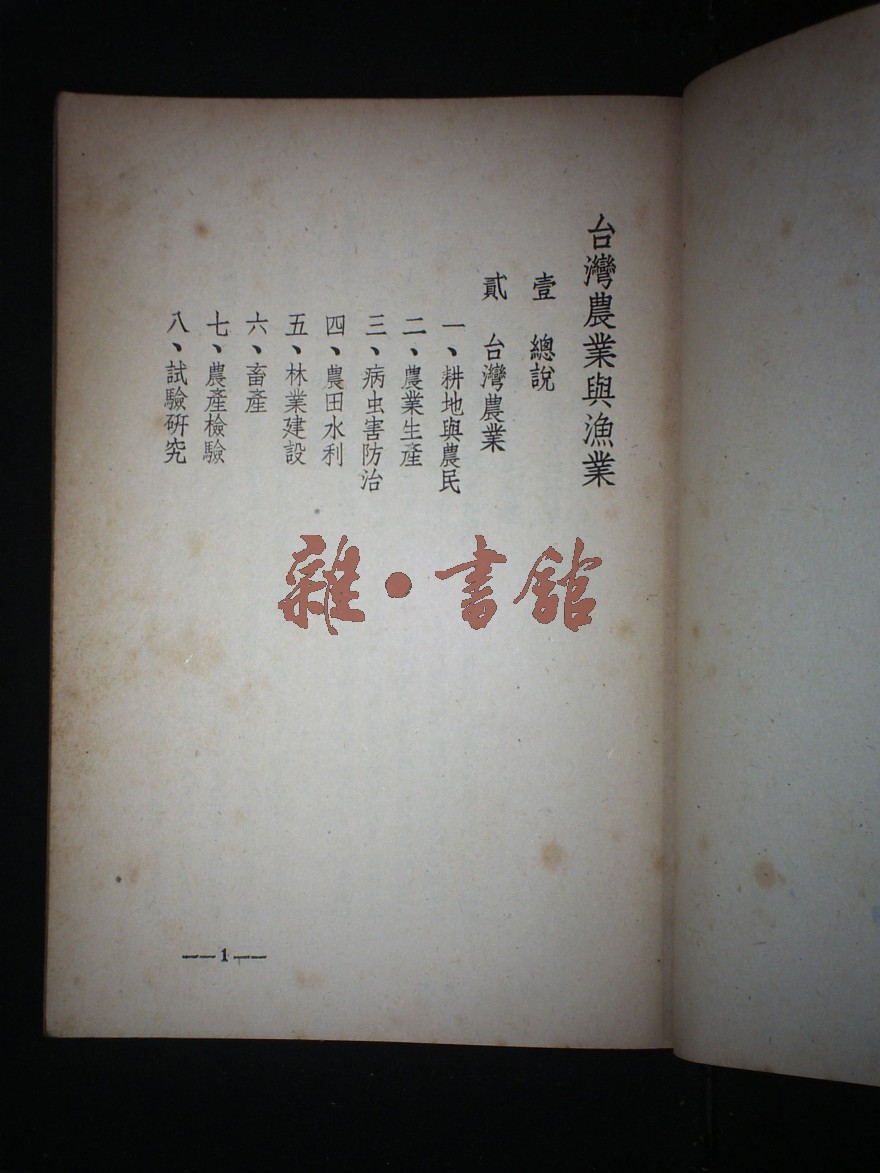 台灣農業與漁業
壹　總說
貳　台灣農業
一、耕地與農民
二、農業生產
三、病虫害防治
四、農田水利
五、林業建設
六、畜產
七、農產檢驗
八、試驗研究
雜・書館
——1——